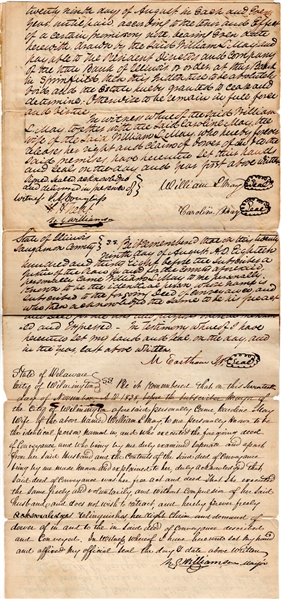 twenty ninth day of August in Each and Every
year until paid according to the tenor and effect
of a certain promissory note bearing even date
herewith drawn by the said William L May and
payable to the President Directors and Company
of the State Bank of Illinois or order at their Bank
in Springfield then this Indenture to be absolutely
void and the Estate hereby granted to cease and
determine. Otherwise to be and remain in full force
and virtue
In witness whereof the said William
L May together with the said Caroline May the
wife of the said William L May who hereby forever
release her right and claim of Dower of in to the
Said premises have hereunto set their hands
and seals on the day and year first above written
Signed Sealed acknowledged
and delivered in presence of
William L May Seal
Caroline May Seal
State of Illinois
Sangamon County SS Be it Remembered that on this twenty
ninth day of August AD Eighteen
hundred and thirty Eight before the subscriber a
Justice of the Peace in and for the County aforesaid
personally came William L May to me personally
known to be the identical person whose name is
subscribed to the foregoing Deed of Conveyance and
who then acknowledged the same to be his free act
and Deed
In testimony whereof I have
hereunto set my hand and seal on the day and
in the year last above written
State of Delaware
City of Wilmington SS Be it remembered that on this Seventeenth
day of November A D 1838 before the subscriber Mayor of
the City of Wilmington aforesaid personally came Caroline May
wife of the above named William L May to me personally known to be
the identical person named in and who executed the foregoing deed
of Conveyance and who being by me duly examined separate and apart
from her Said Husband and the Contents of the Said deed of Conveyance
being by me made known and explained to her duly acknowledged that
Said deed of Conveyance was her free act and deed that She executed
the same freely and voluntarily and without compulsion of her Said
Husband and does not wish to retract and hereby forever freely
acknowledges & Relinquishes her Right Claim and demand of
dower of in and to the in Said deed of Conveyance described
and Conveyed. In testimony whereof I have hereunto set my hand
and affixed my official seal the day & date above written
Williamson Mayor